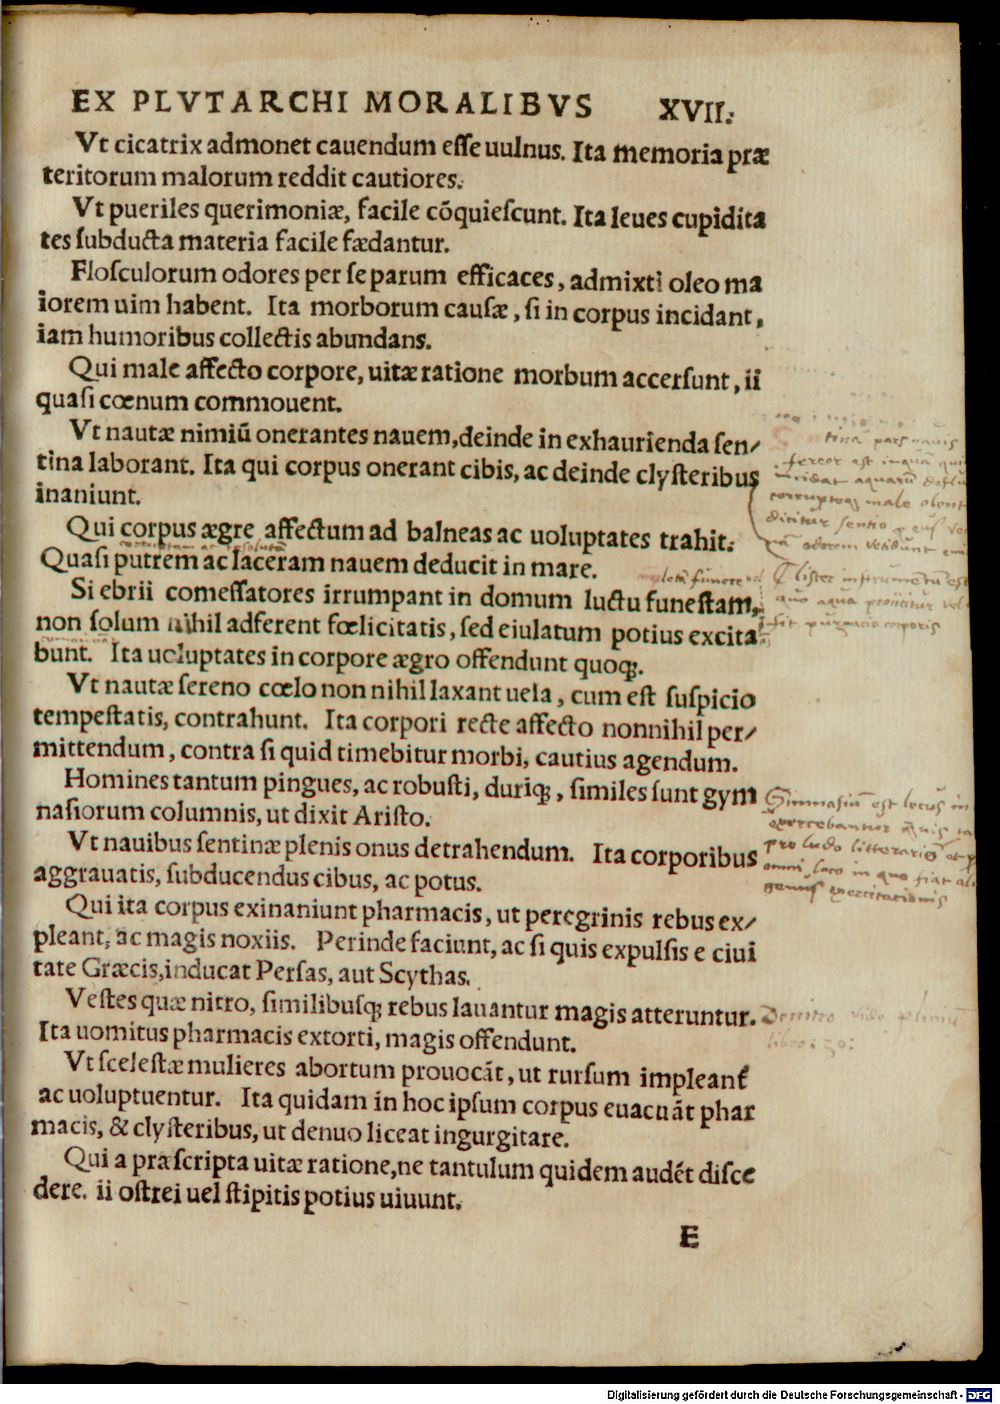 EX PLVTARCHI MORALIBVS XVII.
Vt cicatrix admonet cauendum esse uulnus. Ita memoria præ
teritorum malorum reddit cautiores.
Vt pueriles querimoniæ, facile cõquiescunt. Ita leues cupidita
tes subducta materia facile fædantur.
Flosculorum odores per se parum efficaces, admixti oleo ma
iorem uim habent. Ita morborum causæ, si in corpus incidant,
iam humoribus collectis abundans.
Qui male affecto corpore, uitæ ratione morbum accersunt, ii
quasi cœnum commouent.
Vt nautæ nimiũ onerantes nauem, deinde in exhaurienda sen/
tina laborant. Ita qui corpus onerant cibis, ac deinde clysteribus
inaniunt.
Qui corpus ægre affectum ad balneas ac uoluptates trahit.
Quasi putrem ac laceram nauem deducit in mare.
Si ebrii comessatores irrumpant in domum luctu funestam,
non solum nihil adferent fœlicitatis, sed eiulatum potius excita
bunt. Ita uoluptates in corpore ægro offendunt quoqꝫ.
Vt nautæ sereno cœlo non nihil laxant uela, cum est suspicio
tempestatis, contrahunt. Ita corpori recte affecto nonnihil per/
mittendum, contra si quid timebitur morbi, cautius agendum.
Homines tantum pingues, ac robusti, duriqꝫ, similes sunt gym
nasiorum columnis, ut dixit Aristo.
Vt nauibus sentinæ plenis onus detrahendum. Ita corporibus
aggrauatis, subducendus cibus, ac potus.
Qui ita corpus exinaniunt pharmacis, ut peregrinis rebus ex/
pleant, ac magis noxiis. Perinde faciunt, ac si quis expulsis e ciui
tate Græcis, inducat Persas, aut Scythas.
Vestes quæ nitro, similibusqꝫ rebus lauantur magis atteruntur.
Ita uomitus pharmacis extorti, magis offendunt.
Vt scelestæ mulieres abortum prouocãt, ut rursum impleant̃
ac uoluptuentur. Ita quidam in hoc ipsum corpus euacuãt phar
macis, & clysteribus, ut denuo liceat ingurgitare.
Qui a præscripta uitæ ratione, ne tantulum quidem audẽt disce
dere. ii ostrei uel stipitis potius uiuunt.
E
tina pars nauis
male
odorem
Clister instrumentũ est
quo aqua
fit purgacio corporis
Gimnasiũ est locus in
exercebantur
pro ludo litterario et p
omni loco in quo fiat ali
genus exercitacionis
De nitro vide pliniũ
libro
Digitalisierung gefördert durch die Deutsche Forschungsgemeinschaft - DFG